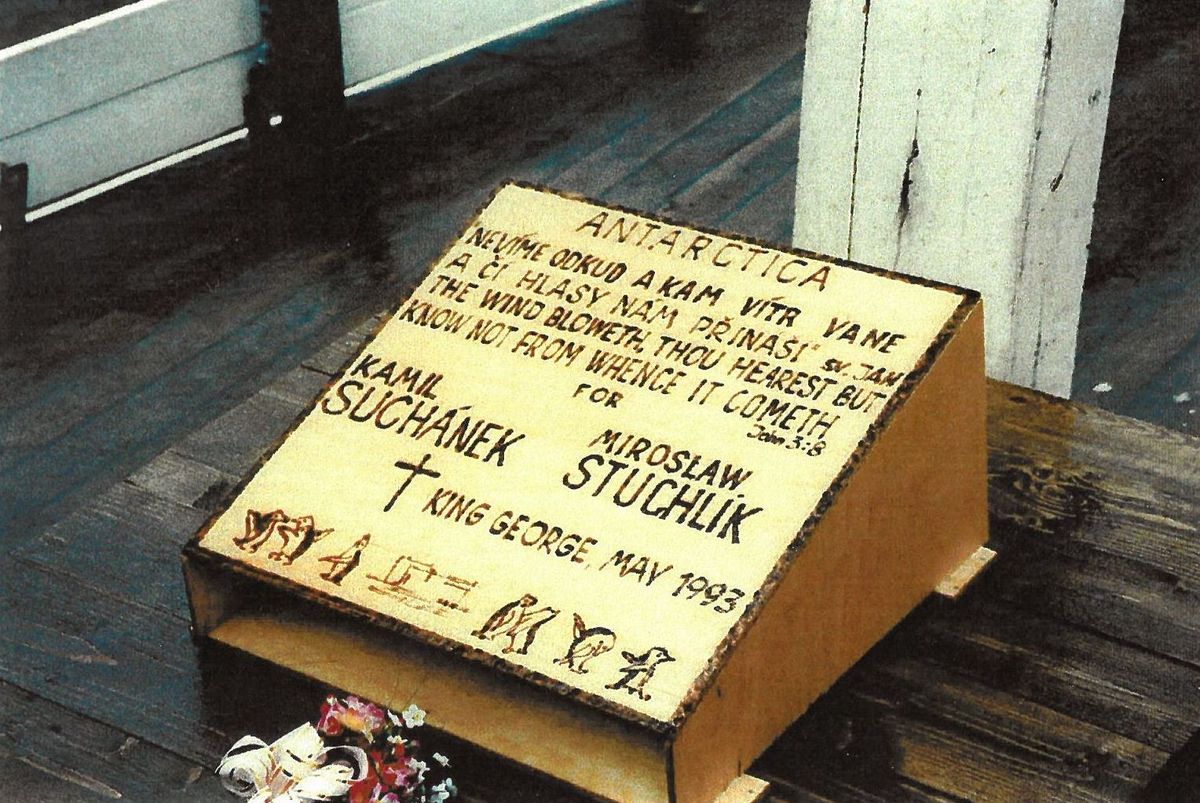 ANTARCTICA
NEVÍME ODKUD A KAM VÍTR VANE
A ČÍ HLASY NÁM PŘINÁŠÍ" SV. JAN
THE WIND BLOWETH, THOU HEAREST BUT
KNOW NOT FROM WHENCE IT COMETH
John 3:8
FOR
KAMIL
SUCHÁNEK
MIROSLAW
STUCHLÍK
† KING GEORGE, MAY 1993